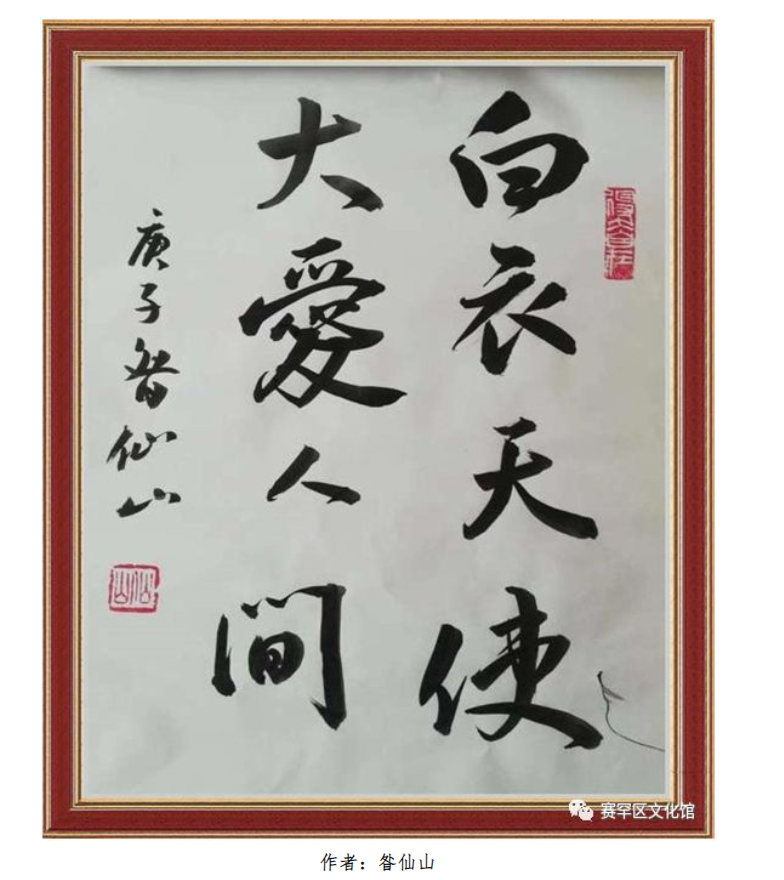 白衣天使
大愛人间
庚子昝仙山
仙山
赛罕区文化馆
作者：昝仙山